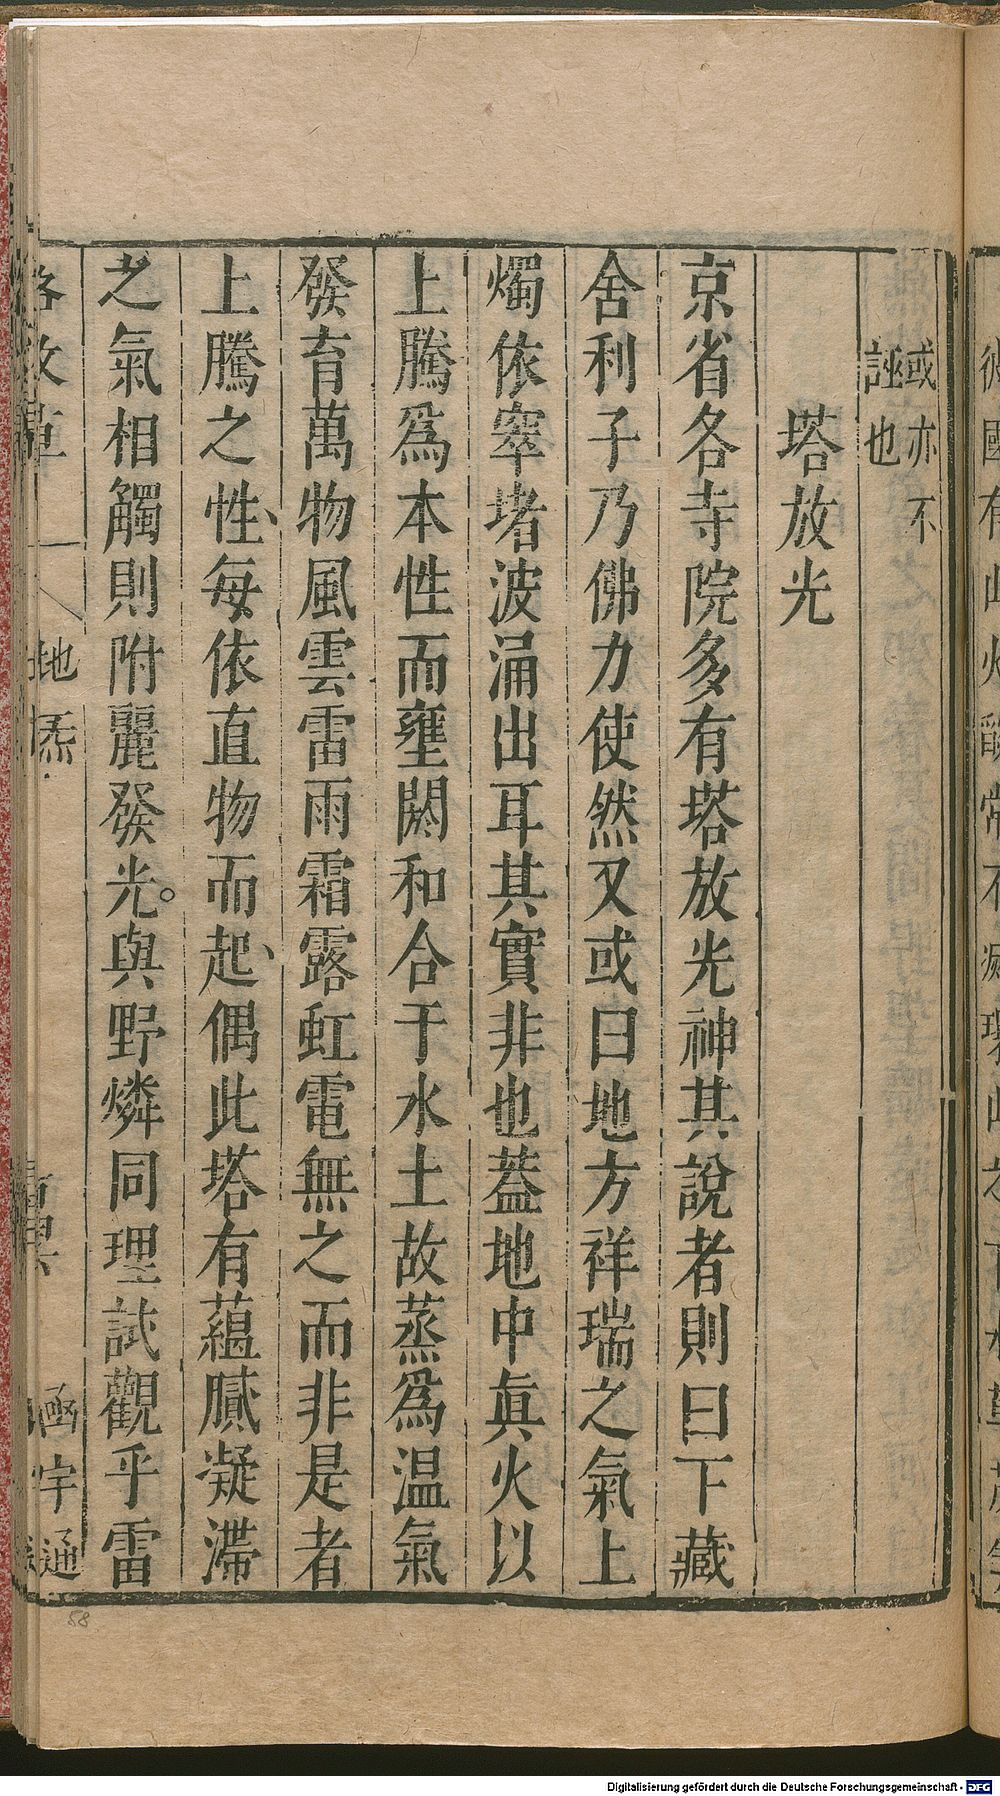 或亦不
誣也
塔放光
京省各寺院多有塔放光神其說者則曰下藏
舍利子乃佛力使然又或曰地方祥瑞之氣上
燭依窣堵波涌出耳其實非也蓋地中眞火以
上騰爲本性而壅閼和合于水土故蒸爲温氣
發育萬物風雲雷雨霜露虹電無之而非是者
上騰之性、每依直物而起、偶此塔有蘊膩凝滯
之氣相觸則附麗發光。與野燐同理試觀乎雷
格致草
地
函宇通
58
Digitalisierung gefördert durch die Deutsche Forschungsgemeinschaft - DFG